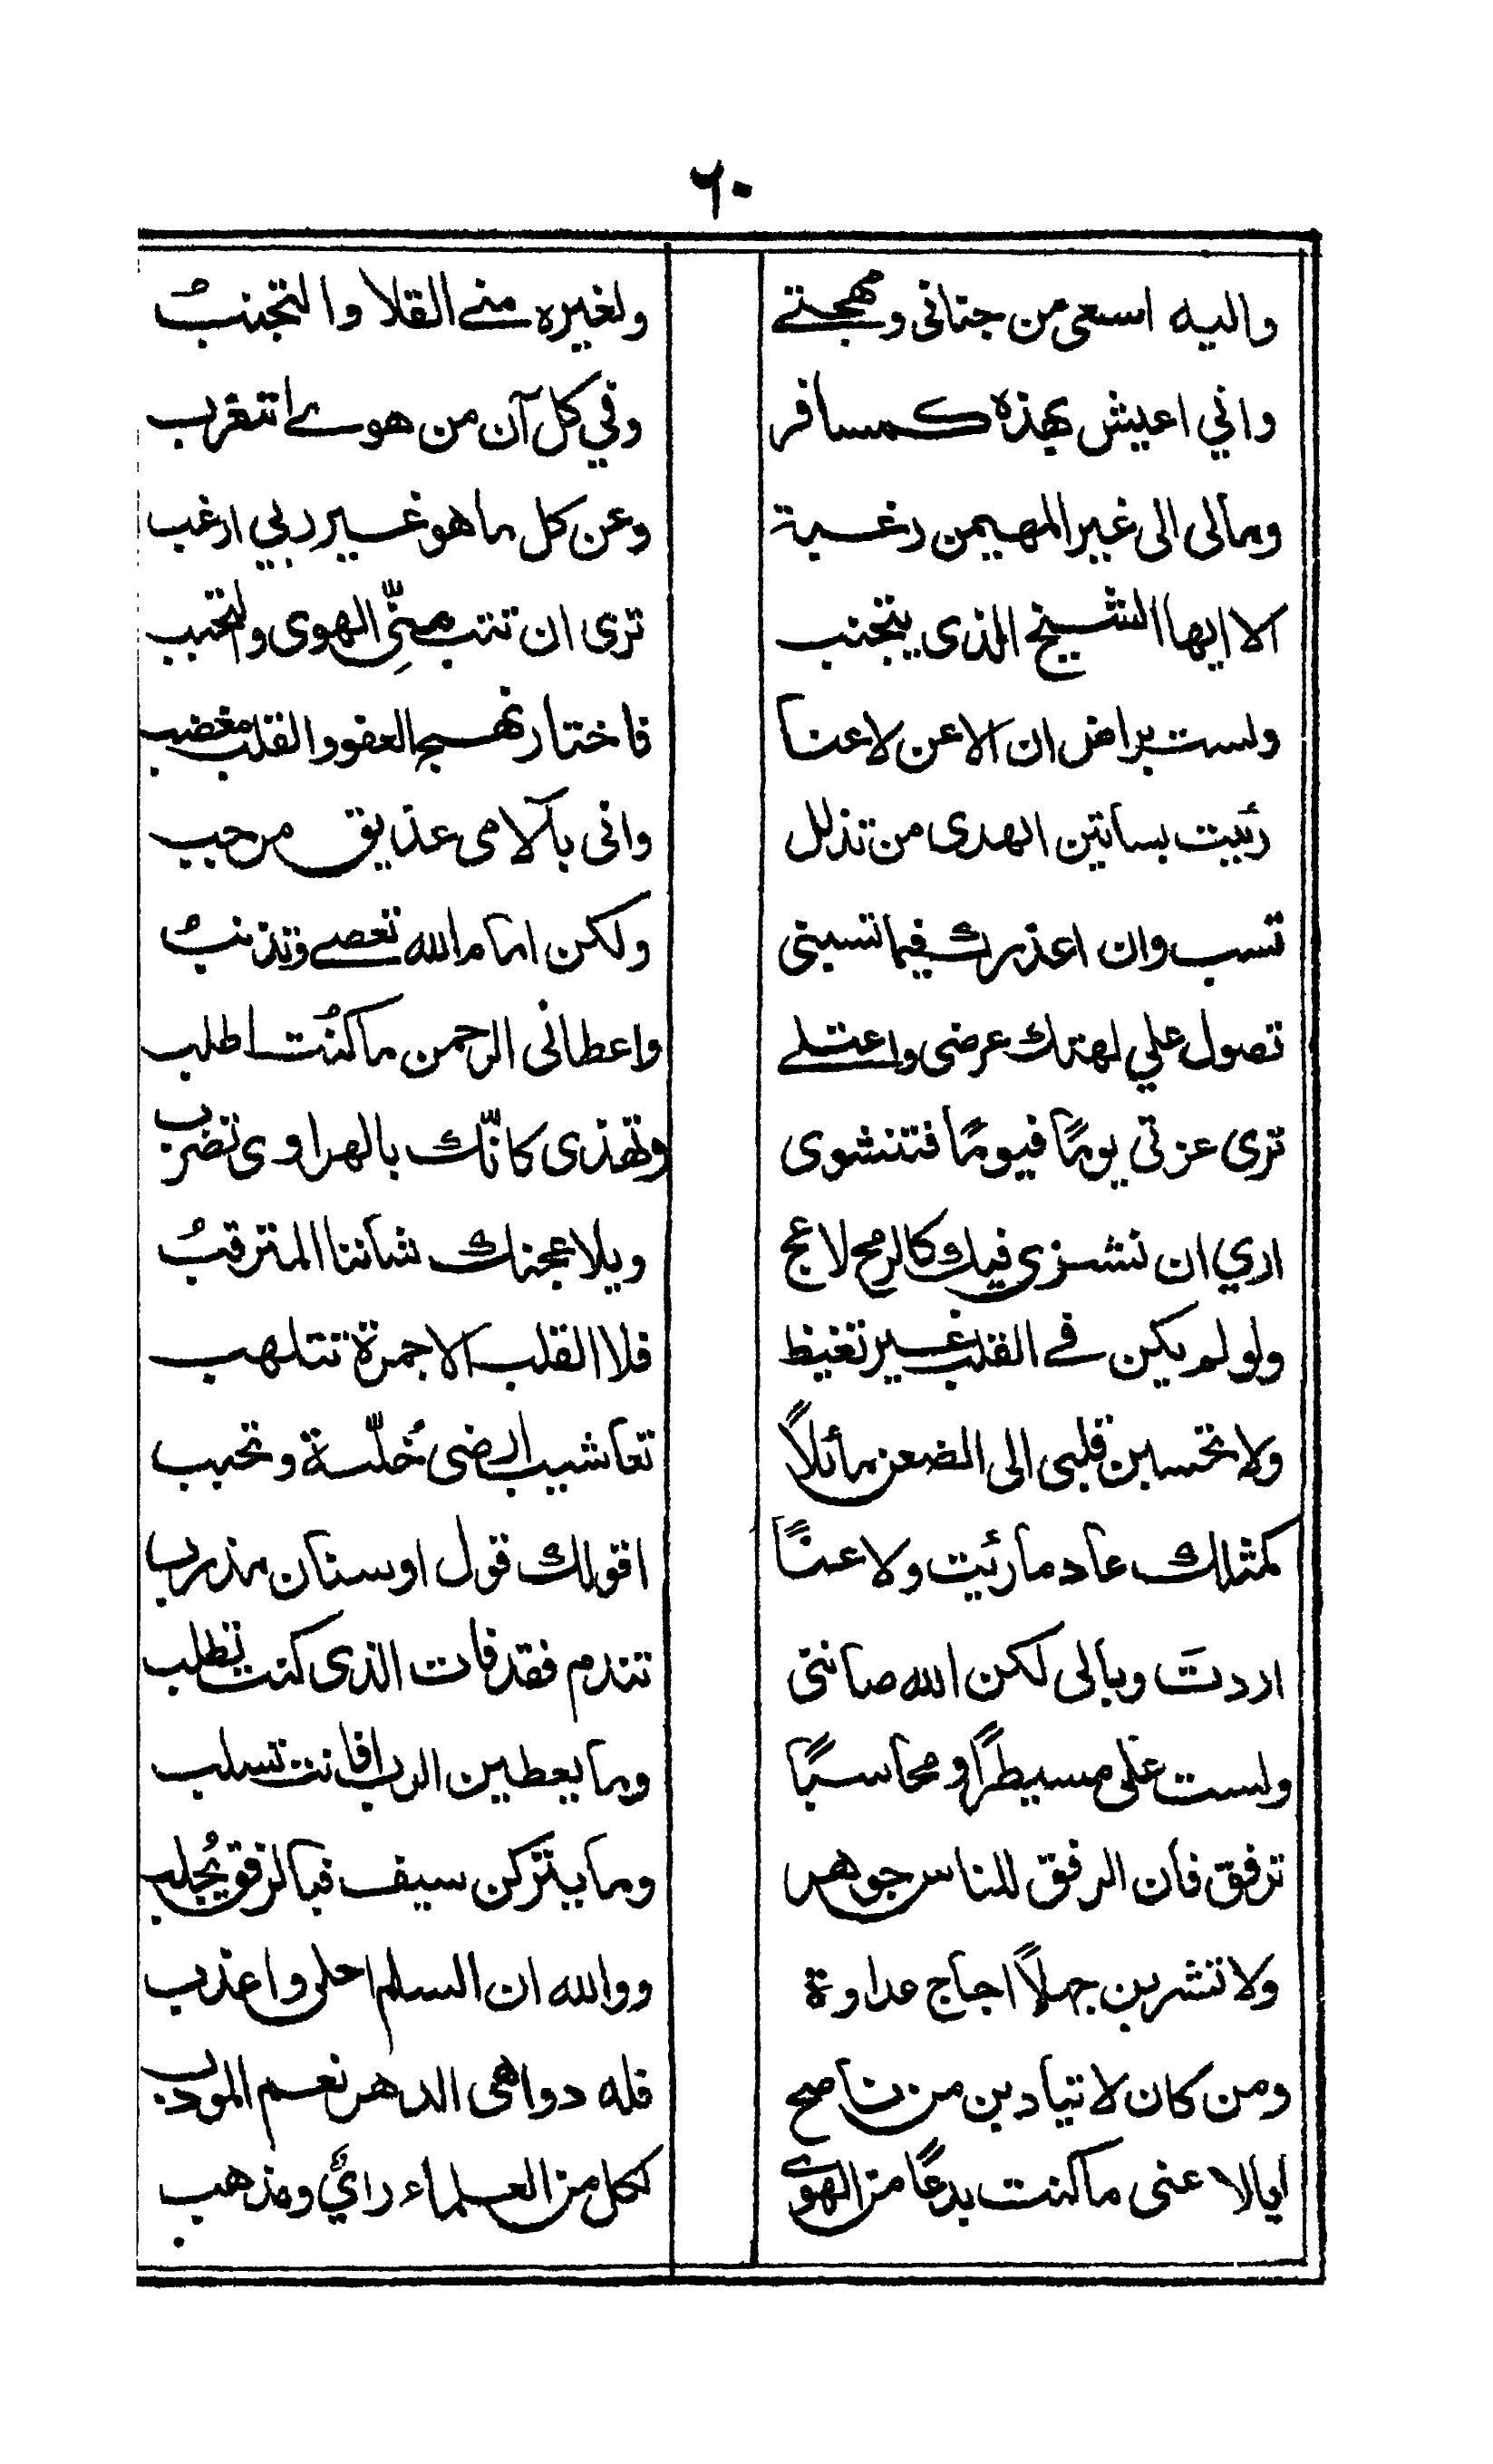 ٦٠
واليه اسعى من جنانى ومهجتے ولغيره منے القلا والتجنبُ
واني اعيش بهذه كمسافر وفي كل آن من هوے اتغرب
ومالى الى غير المهيمن رغبة وعن كل ما هو غير ربي ارغب
الا ايها الشيخ الذى يتجنب ترى ان تتب منِّى الهوى والتحبب
ولست براض ان الاعن لاعنا فاختار نهج العفو والقلب مغضب
رئيت بساتين الهدى من تذلل وانى بآلامى عذيق مرجب
تسب وان اعذرك فيما تسبنى ولكن امام الله تعصے وتذنبُ
تصول علي لهتك عرضى واعتلے واعطانى الرحمن ما كنُت اطلب
ترى عزتي يومًا فيومًا فتنشوى وتهذى كانّك بالهراوى تضرب
اري ان نشزى فيك كالرمح لاعج ويلاعجنك شاننا المترقبُ
ولو لم يكن فے القلب غير تغيظ فلا القلب الا جمرة تتلهب
ولا تحسبن قلبى الى الضعن مائلاً تعاشيب ارضى خُلّسة وتحبب
كمثلك عاد ما رئيت ولا عنًا اقولك قول او سنان مذرب
اردتَ وبالى لكن الله صاننى تندم فقد فات الذى كنت تطلب
ولست على مسيطرًا ومحاسبًا وما يعطين الرب افانت تسلب
ترفق فان الرفق للناس جوهر وما يتركن سيف فبالرفق يُجلب
ولا تشربن جهلاً اجاج عداوة ووالله ان السلم احلى واعذب
ومن كان لا تيادبن من ناصح فله دواهى الدهر نعم المودب
ايا لاعنى ما كنت بدعًا من الهوى لكل من العلماء رايٌ ومذهب